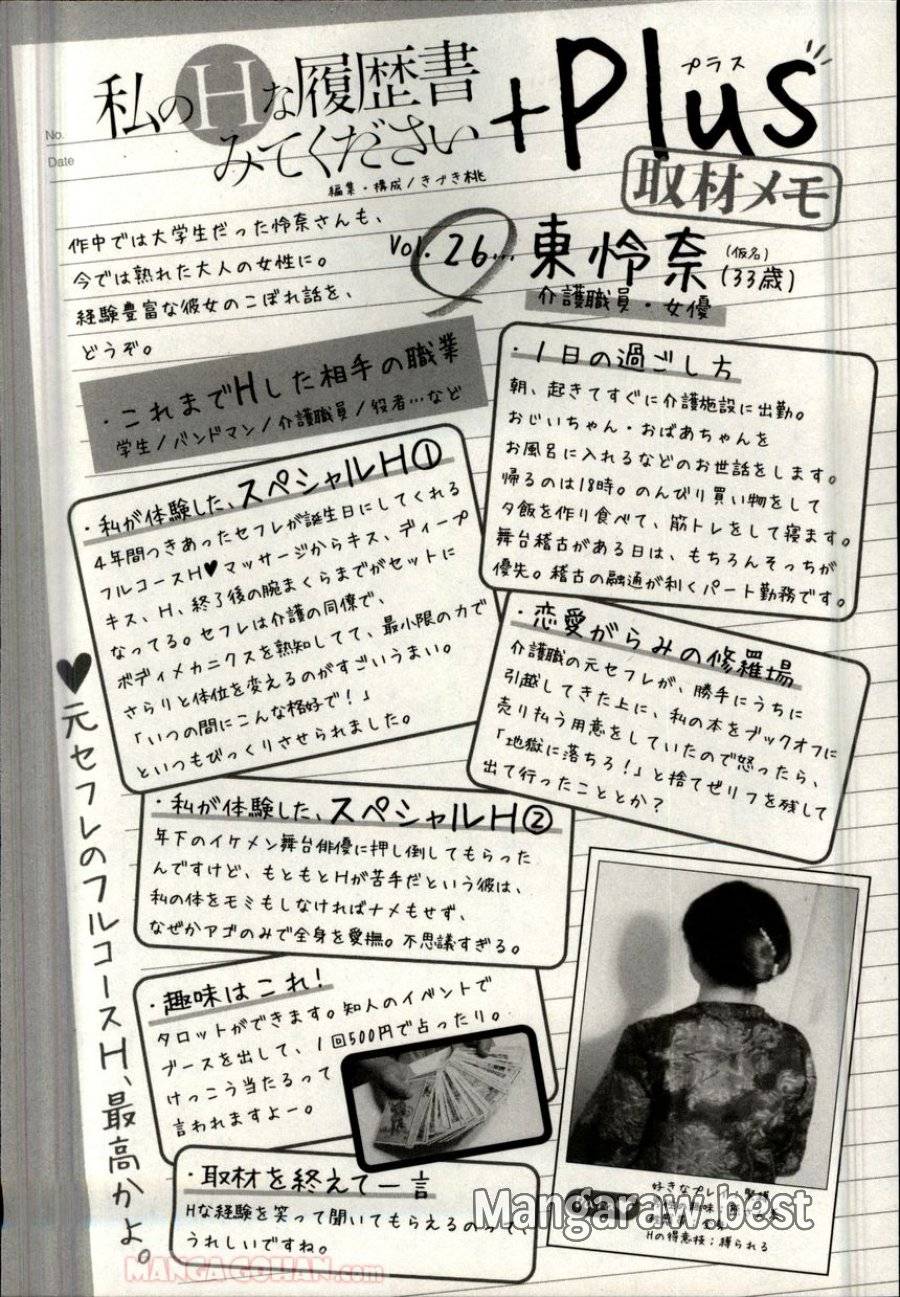 No.
Date
私のHな履歴書
みてください
+Plus
プラス
編集・構成/きづき桃
取材メモ
作中では大学生だった怜奈さんも、
今では熟れた大人の女性に。
経験豊富な彼女のこぼれ話を、
どうぞ。
Vol.26...
東怜奈
(仮名)
(33歳)
介護職員・女優
・これまでHした相手の職業
学生/バンドマン/介護職員/役者…など
・1日の過ごし方
朝、起きてすぐに介護施設に出勤。
おじいちゃん・おばあちゃんを
お風呂に入れるなどのお世話をします。
帰るのは18時。のんびり買い物をして
夕飯を作り食べて、筋トレをして寝ます。
舞台稽古がある日は、もちろんそっちが
優先。稽古の融通が利くパート勤務です。
・私が体験した、スペシャルH①
4年間つきあったセフレが誕生日にしてくれる
フルコースH♥マッサージからキス、ディープ
キス、H、終了後の腕まくらまでがセットに
なってる。セフレは介護の同僚で、
ボディメカニクスを熟知してて、最小限の力で
さらりと体位を変えるのがすごいうまい。
「いつの間にこんな格好で!」
といつもびっくりさせられました。
・恋愛がらみの修羅場
介護職の元セフレが、勝手にうちに
引越してきた上に、私の本をブックオフに
売り払う用意をしていたので怒ったら、
「地獄に落ちろ!」と捨てゼリフを残して
出て行ったこととか?
♥元セフレのフルコースH、最高かよ。
・私が体験した、スペシャルH②
年下のイケメン舞台俳優に押し倒してもらった
んですけど、もともとHが苦手だという彼は、
私の体をモミもしなければナメもせず、
なぜかアゴのみで全身を愛撫。不思議すぎる。
・趣味はこれ!
タロットができます。知人のイベントで
ブースを出して、1回500円で占ったり。
けっこう当たるって
言われますよー。
・取材を終えて一言
Hな経験を笑って聞いてもらえるのって、
うれしいですね。
好きなプレイ:緊縛
Hの得意技:縛られる
Mangaraw.best
MANGAGOHAN.com